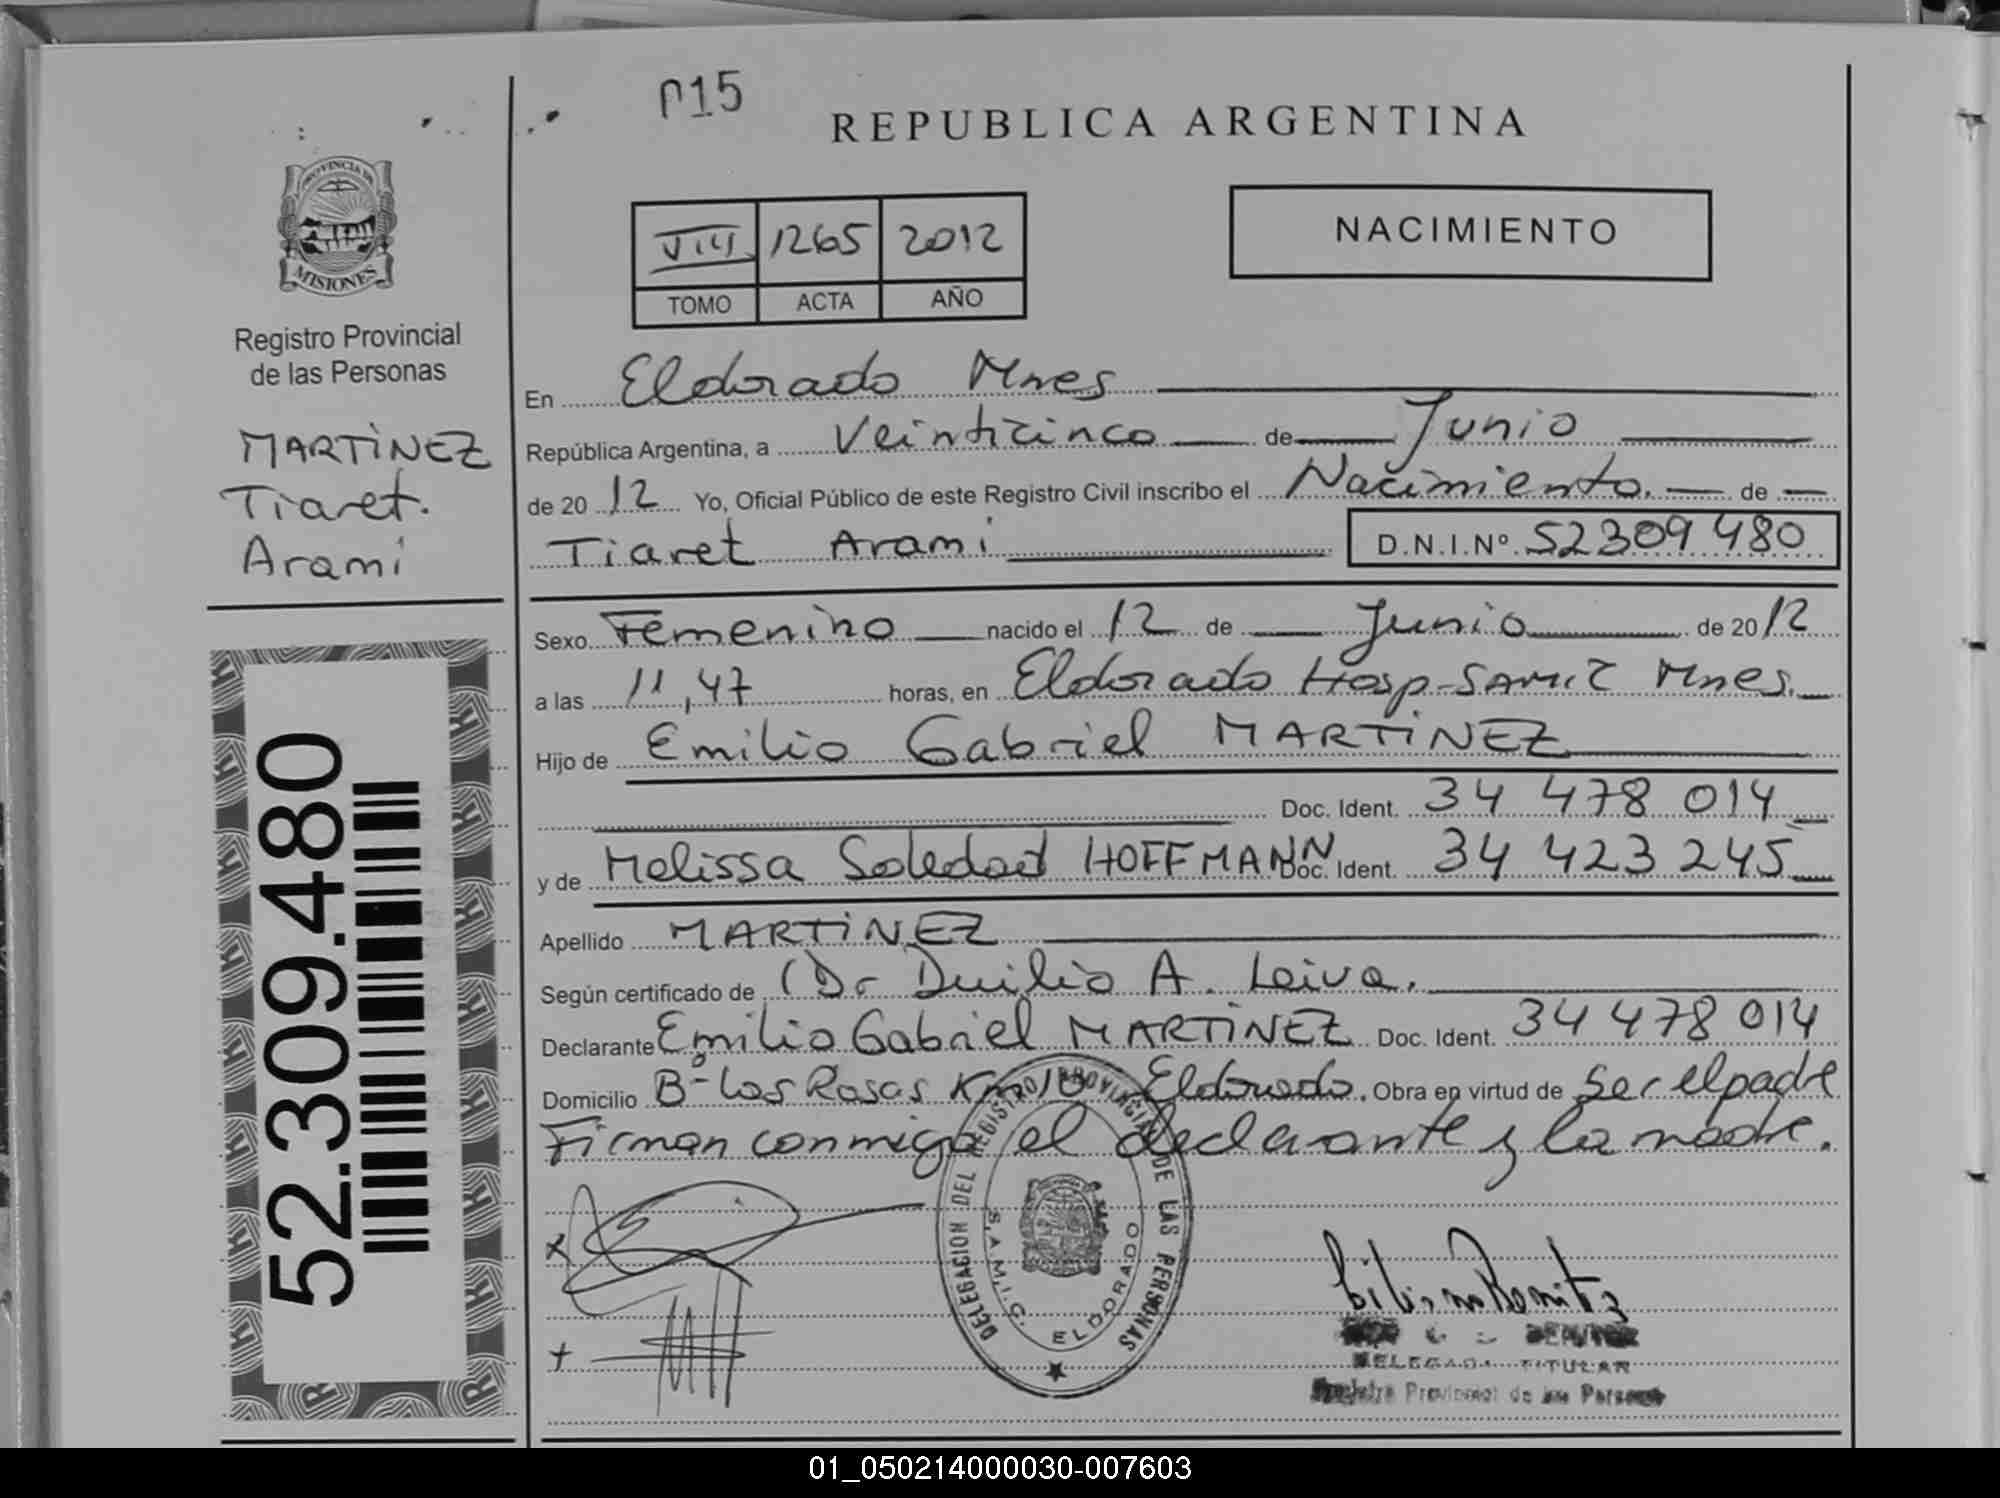 015
REPUBLICA ARGENTINA
PROVINCIA DE
MISIONES
Registro Provincial
de las Personas
MARTINEZ
Tiaret.
Arami
52.309.480
VIII 1265 2012
TOMO ACTA AÑO
NACIMIENTO
En Eldorado Mnes
República Argentina, a Veinticinco de Junio
de 2012 Yo, Oficial Público de este Registro Civil inscribo el Nacimiento. de
Tiaret Arami D.N.I.Nº 52309480
Sexo Femenino nacido el 12 de Junio de 2012
a las 11,47 horas, en Eldorado Hosp-SAMIC Mnes.
Hijo de Emilio Gabriel MARTINEZ
Doc. Ident. 34 478 014
y de Melissa Soledad HOFFMANN Doc. Ident. 34 423 245
Apellido MARTINEZ
Según certificado de Dr Duilio A. Leiva.
Declarante Emilio Gabriel MARTINEZ Doc. Ident. 34 478 014
Domicilio Bº Las Rosas Km 10 Eldorado. Obra en virtud de Ser el padre
Firman conmigo el declarante y la madre.
DELEGACION DEL REGISTRO PROVINCIAL DE LAS PERSONAS
S.A.M.I.C. ELDORADO
DELEGADA TITULAR
Registro Provincial de las Personas
01_050214000030-007603